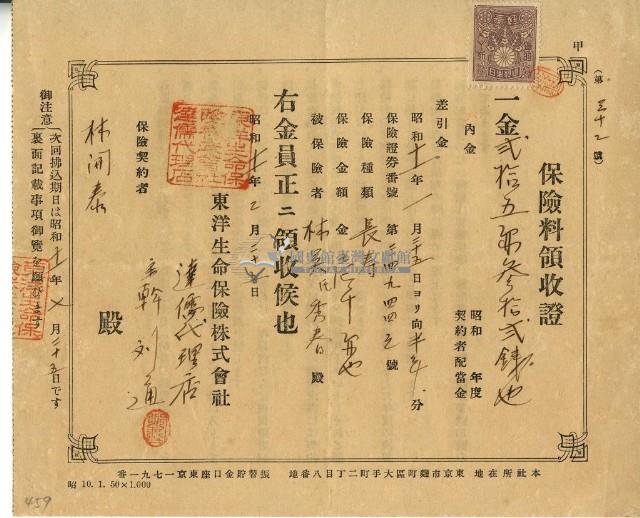 甲
(第三十二號)
保險料領收證
一金貳拾五円參拾貳錢也
內金
昭和 年度
契約者配當金
差引金
昭和十一年一月二十五日ヨリ向半年分
保險證券番號
保險種類 長壽
保險金額 金
被保險者 林 殿
右金員正ニ領收候也
昭和十一年二月二十 日
東洋生命保險株式會社
達優代理店
主幹 劉通
保險契約者
林開泰
殿
御注意
次回拂込期日は昭和十一年七月二十五日です
裏面記載事項御覽を願ひます
本社所在地 東京市麴町區大手町二丁目八番地 振替貯金口座東京一七九一番
昭 10. 1. 50×1.000
459
國史館臺灣文獻館